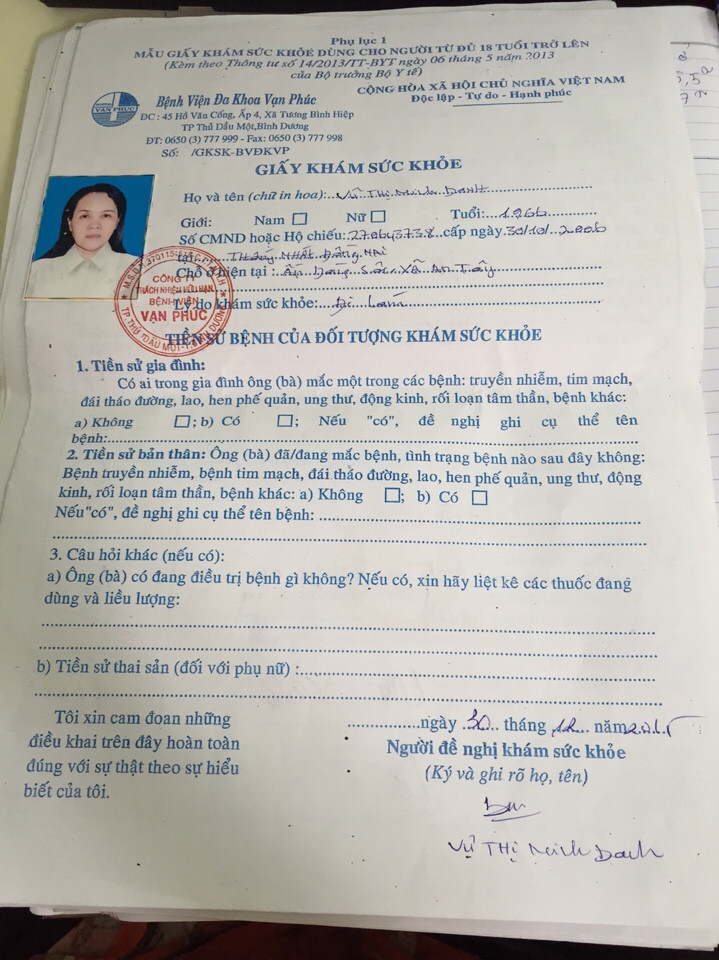 Phụ lục 1
MẪU GIẤY KHÁM SỨC KHỎE DÙNG CHO NGƯỜI TỪ ĐỦ 18 TUỔI TRỞ LÊN
(Kèm theo Thông tư số 14/2013/TT-BYT ngày 06 tháng 5 năm 2013
của Bộ trưởng Bộ Y tế)
VẠN PHÚC
Bệnh Viện Đa Khoa Vạn Phúc
ĐC : 45 Hồ Văn Cống, Ấp 4, Xã Tương Bình Hiệp
TP Thủ Dầu Một,Bình Dương
ĐT: 0650 (3) 777 999 - Fax: 0650 (3) 777 998
Số: /GKSK-BVĐKVP
CỘNG HÒA XÃ HỘI CHỦ NGHĨA VIỆT NAM
Độc lập - Tự do - Hạnh phúc
GIẤY KHÁM SỨC KHỎE
Họ và tên (chữ in hoa): Vũ Thị Minh Danh
Giới: Nam □ Nữ □ Tuổi: 1966
Số CMND hoặc Hộ chiếu: 270643738 cấp ngày 30/10/2006
tại Thống Nhất Đồng Nai
Chỗ ở hiện tại : Xã An Tây
Lý do khám sức khỏe: Đi Làm
CÔNG TY
TRÁCH NHIỆM HỮU HẠN
BỆNH VIỆN
VẠN PHÚC
TIỀN SỬ BỆNH CỦA ĐỐI TƯỢNG KHÁM SỨC KHỎE
1. Tiền sử gia đình:
Có ai trong gia đình ông (bà) mắc một trong các bệnh: truyền nhiễm, tim mạch,
đái tháo đường, lao, hen phế quản, ung thư, động kinh, rối loạn tâm thần, bệnh khác:
a) Không □; b) Có □; Nếu "có", đề nghị ghi cụ thể tên
bệnh:
2. Tiền sử bản thân: Ông (bà) đã/đang mắc bệnh, tình trạng bệnh nào sau đây không:
Bệnh truyền nhiễm, bệnh tim mạch, đái tháo đường, lao, hen phế quản, ung thư, động
kinh, rối loạn tâm thần, bệnh khác: a) Không □; b) Có □
Nếu"có", đề nghị ghi cụ thể tên bệnh:
3. Câu hỏi khác (nếu có):
a) Ông (bà) có đang điều trị bệnh gì không? Nếu có, xin hãy liệt kê các thuốc đang
dùng và liều lượng:
b) Tiền sử thai sản (đối với phụ nữ) :
Tôi xin cam đoan những
điều khai trên đây hoàn toàn
đúng với sự thật theo sự hiểu
biết của tôi.
ngày 30 tháng 12 năm 2015
Người đề nghị khám sức khỏe
(Ký và ghi rõ họ, tên)
Vũ Thị Minh Danh